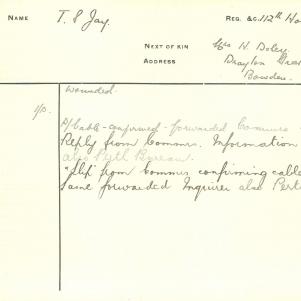 NAME T. S Jay. REG. &C. 112th Ho
NEXT OF KIN Mrs H. Doley
ADDRESS Drayton
Bowden.
wounded.
Cable confirmed forwarded Commrs.
Reply from Commrs. Information
also Perth Bureau.
"slip" from Commrs. confirming cable
same forwarded Inquirer also Pert